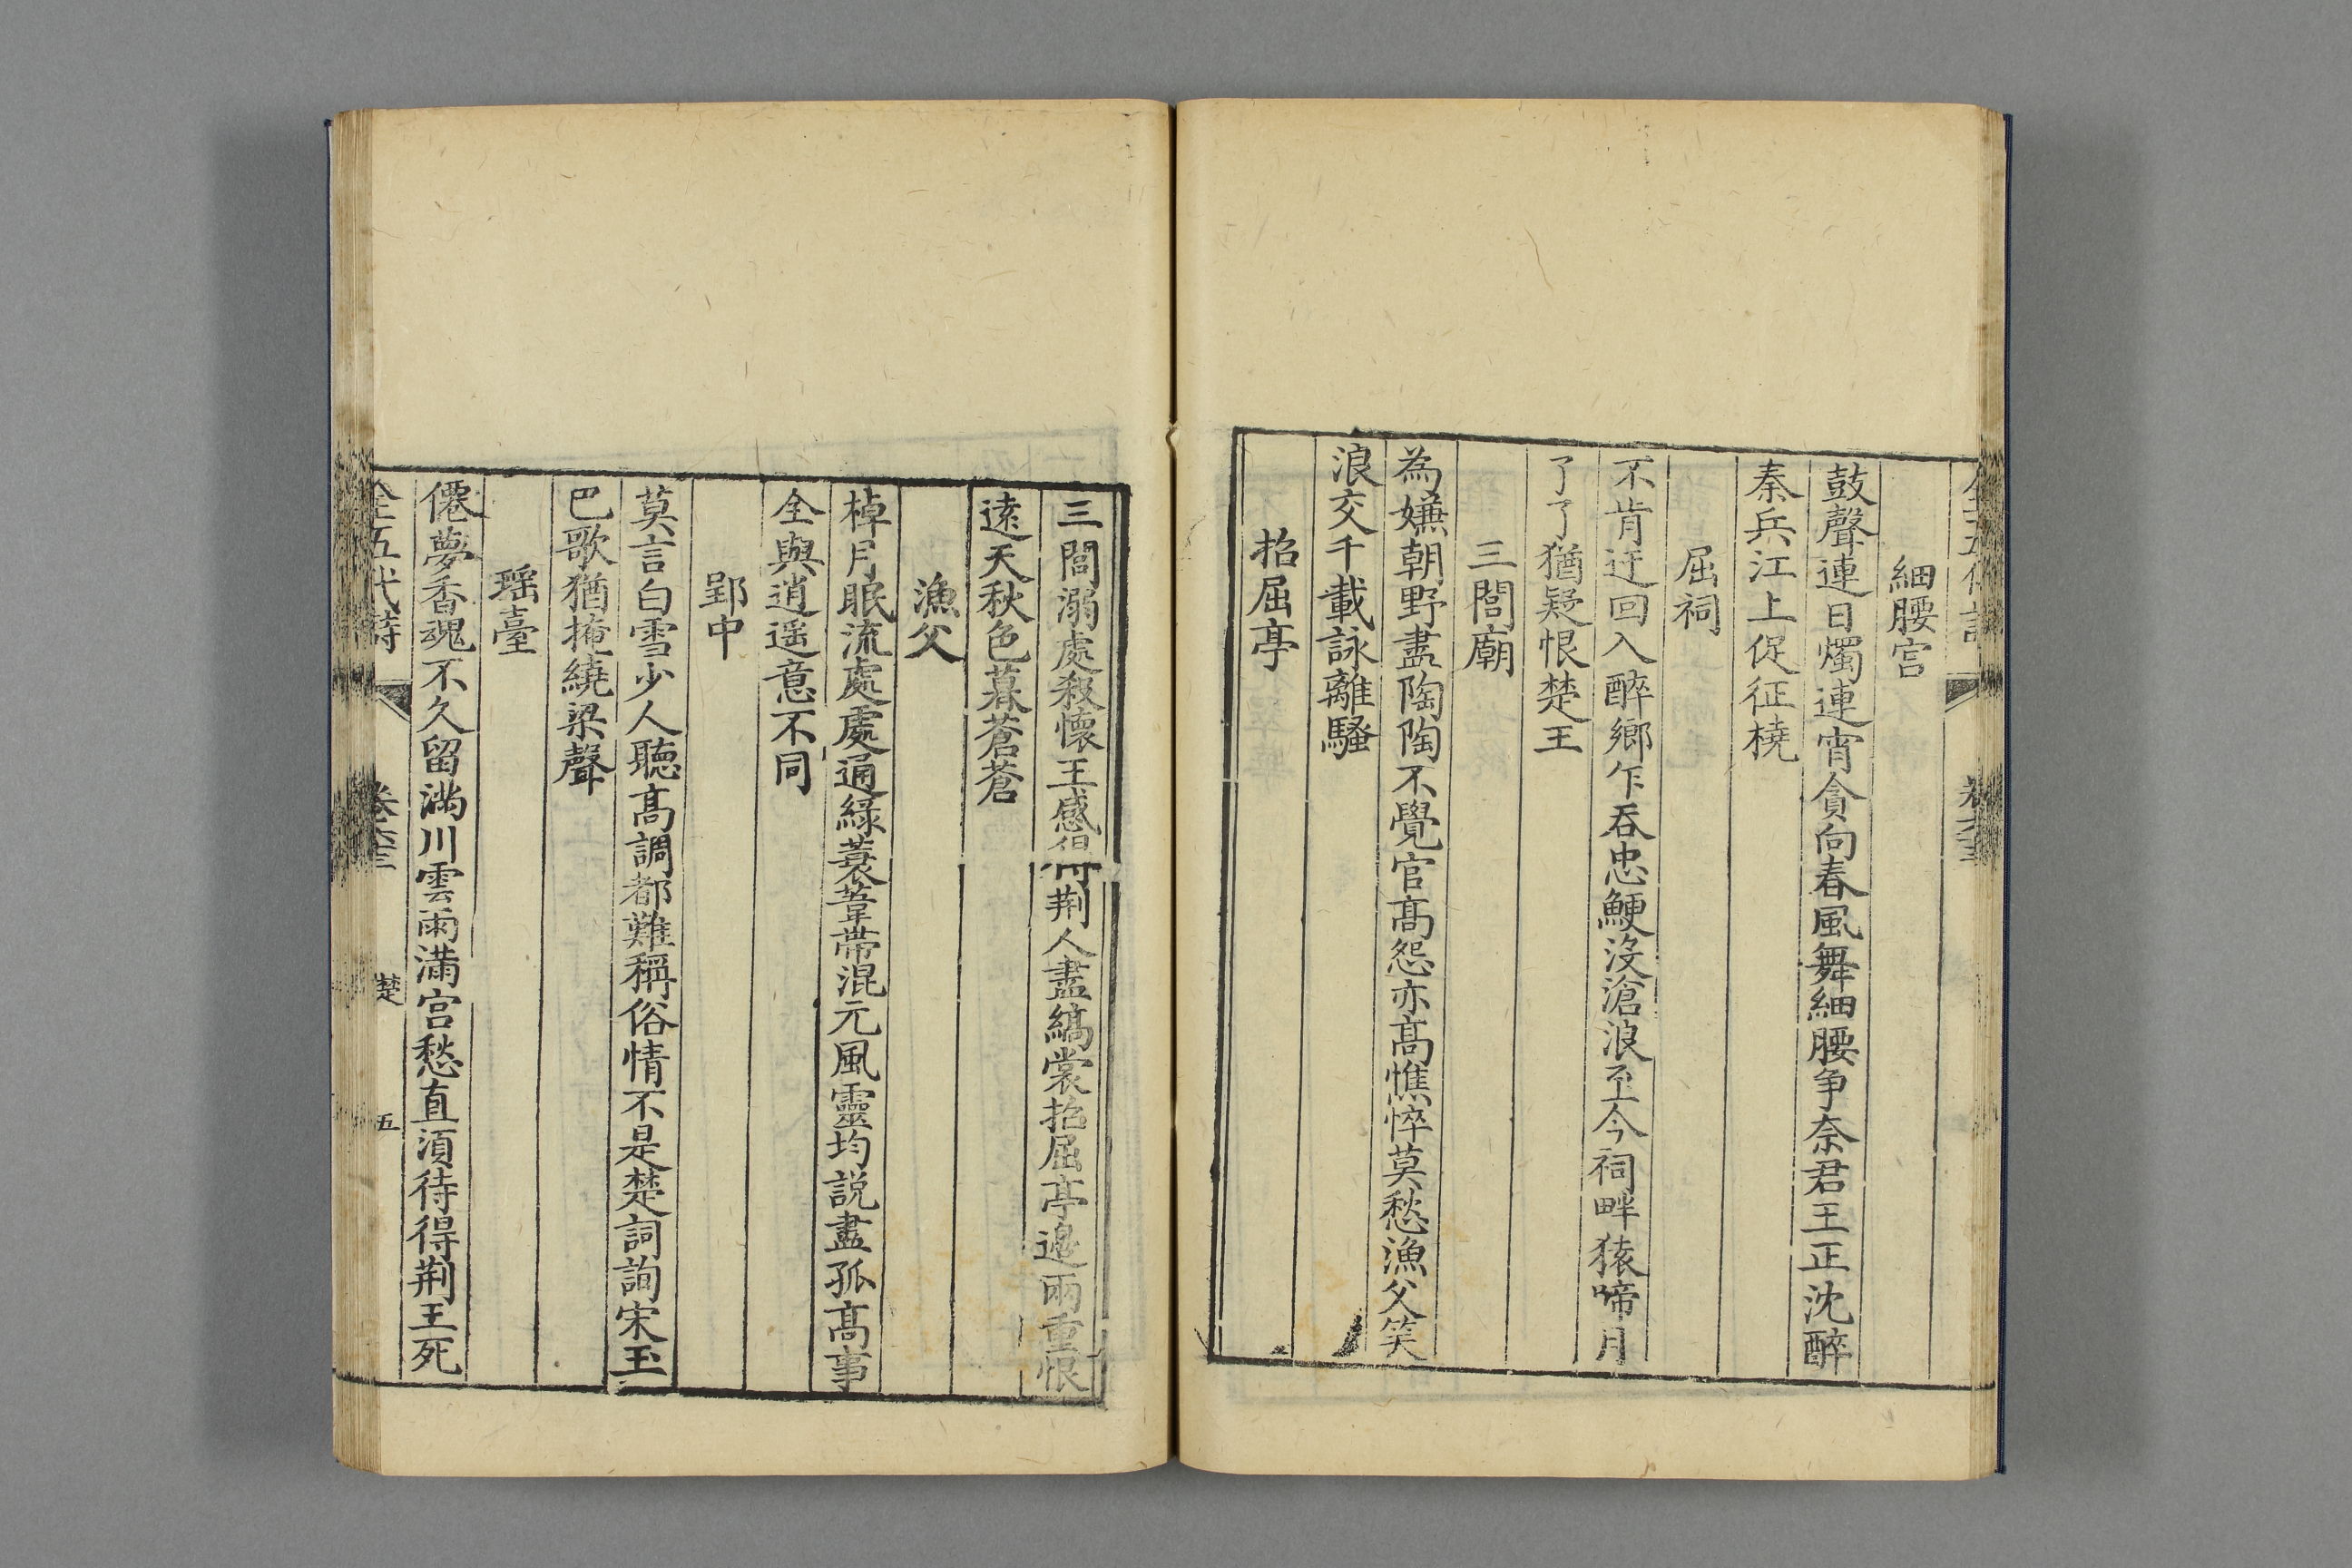 細腰宫
鼓聲連日燭連宵貪向春風舞細腰争奈君王正沈醉
秦兵江上促征橈
屈祠
不肯迂回入醉鄉乍吞忠鯁沒滄浪至今祠畔猿啼月
了了猶疑恨楚王
三閭廟
為嫌朝野盡陶陶不覺官髙怨亦髙憔悴莫愁漁父笑
浪交千載詠離騷
招屈亭
三閭溺處殺懷王感得荆人盡縞裳招屈亭邊兩重恨
逺天秋色暮蒼蒼
漁父
棹月眠流處處通綠蓑葦帶混元風靈均説盡孤髙事
全與逍遥意不同
郢中
莫言白雪少人聽髙調都難稱俗情不是楚詞詢宋玉
巴歌猶掩繞梁聲
瑶臺
僊夢香魂不久留滿川雲雨滿宫愁直須待得荆王死
全五代詩 卷六三 楚 五